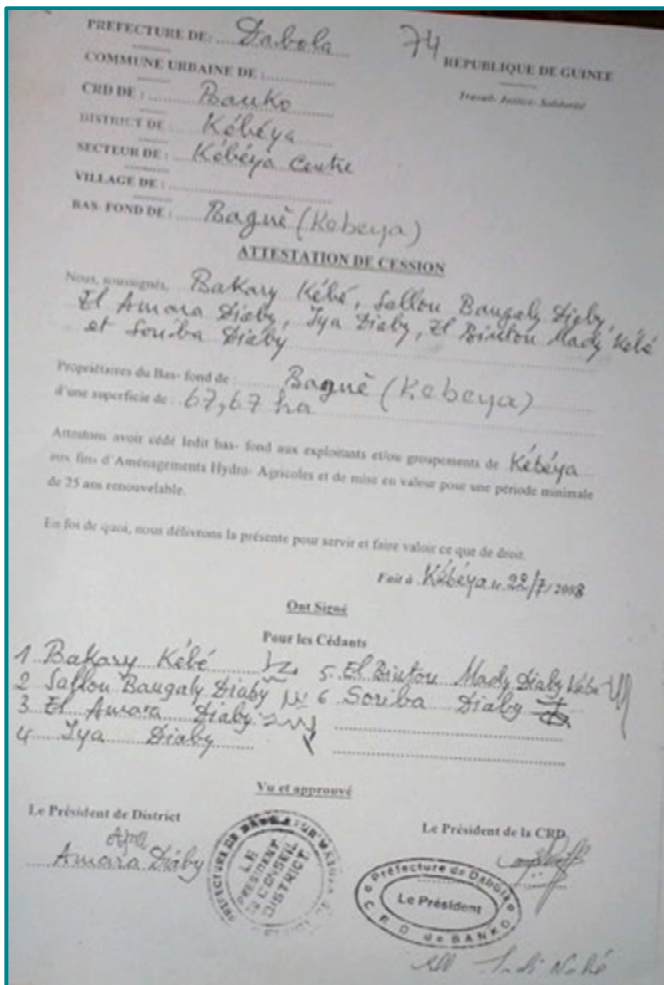 PREFECTURE DE: Dabola
74
REPUBLIQUE DE GUINEE
COMMUNE URBAINE DE :
Travail- Justice- Solidarité
CRD DE : Banko
DISTRICT DE : Kébéya
SECTEUR DE : Kébéya Centre
VILLAGE DE :
BAS- FOND DE : Bagnè (Kebeya)
ATTESTATION DE CESSION
Nous, soussignés, Bakary Kébé, Sallou Baugaly Diaby,
El Amara Diaby, Iya Diaby, El Bintou Mady Kébé
et Soriba Diaby
Propriétaires du Bas- fond de : Bagnè (Kebeya)
d'une superficie de : 67,67 ha
Attestons avoir cédé ledit bas- fond aux exploitants et/ou groupements de Kébéya
aux fins d'Aménagements Hydro- Agricoles et de mise en valeur pour une période minimale
de 25 ans renouvelable.
En foi de quoi, nous délivrons la présente pour servir et faire valoir ce que de droit.
Fait à Kébéya le 22/7/2008
Ont Signé
Pour les Cédants
1 Bakary Kébé
5. El Bintou Mady Diaby Kébé
2 Sallou Baugaly Diaby
6 Soriba Diaby
3 El Amara Diaby
4 Iya Diaby
Vu et approuvé
Le Président de District
Le Président de la CRD
Amara Diaby
LE
PRESIDENT
CONSEIL
DISTRICT
Préfecture de Dabola
Le Président
C.R.D de BANKO